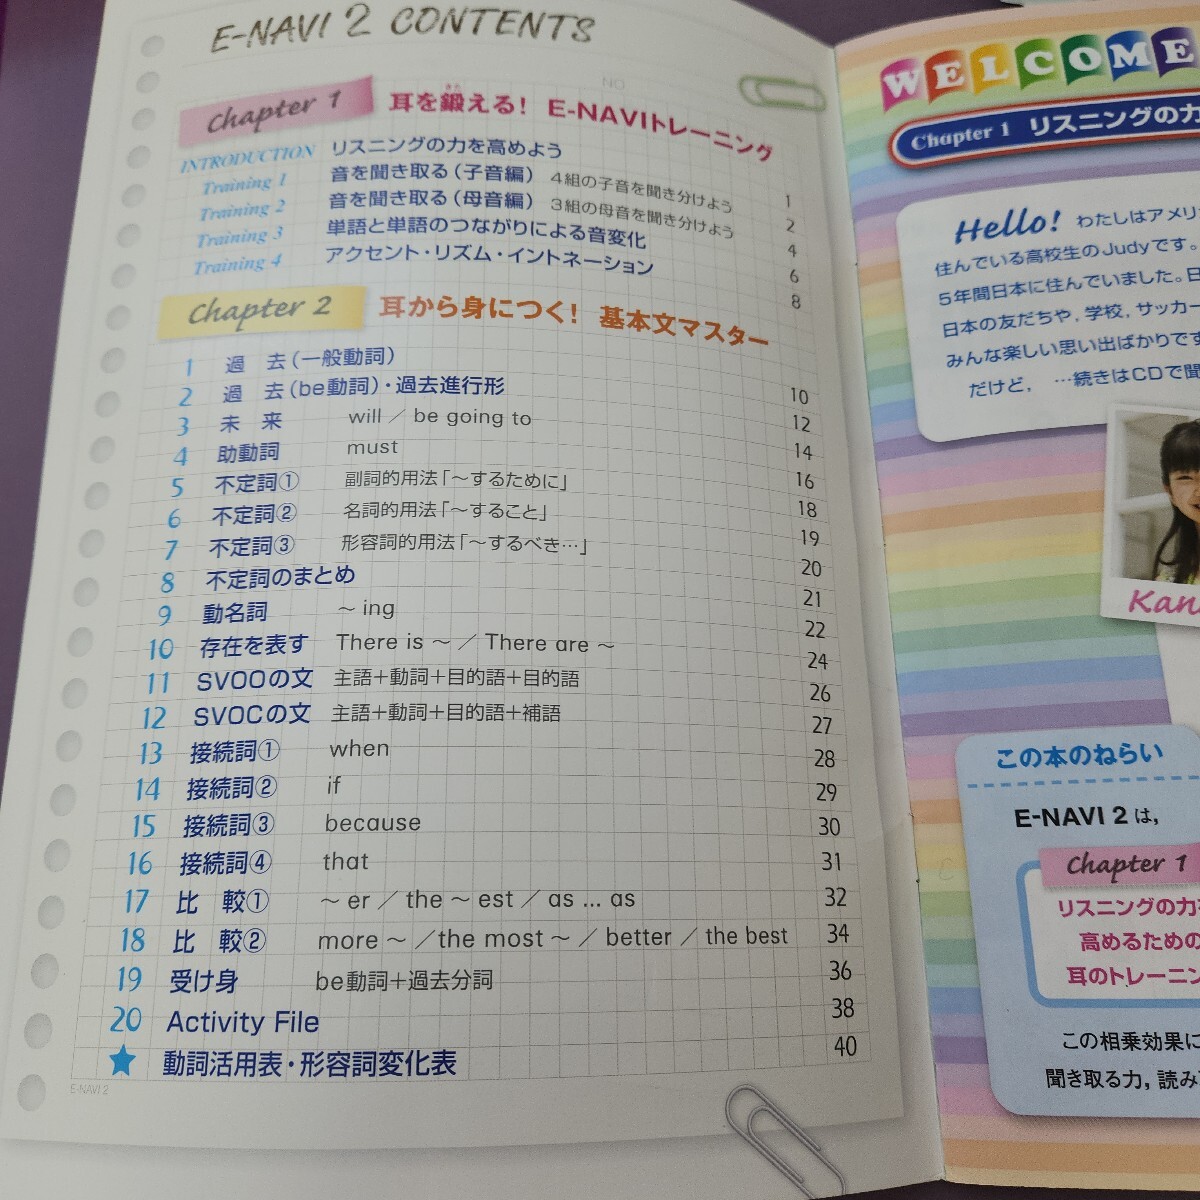 E-NAVI 2 CONTENTS
NO
Chapter 1 耳を鍛える! E-NAVIトレーニング
きた
INTRODUCTION リスニングの力を高めよう 1
Training 1 音を聞き取る(子音編) 4組の子音を聞き分けよう 2
Training 2 音を聞き取る(母音編) 3組の母音を聞き分けよう 4
Training 3 単語と単語のつながりによる音変化 6
Training 4 アクセント・リズム・イントネーション 8
Chapter 2 耳から身につく! 基本文マスター
1 過 去(一般動詞) 10
2 過 去(be動詞)・過去進行形 12
3 未 来 will / be going to 14
4 助動詞 must 16
5 不定詞① 副詞的用法「～するために」 18
6 不定詞② 名詞的用法「～すること」 19
7 不定詞③ 形容詞的用法「～するべき…」 20
8 不定詞のまとめ 21
9 動名詞 ～ ing 22
10 存在を表す There is ～ / There are ～ 24
11 SVOOの文 主語+動詞+目的語+目的語 26
12 SVOCの文 主語+動詞+目的語+補語 27
13 接続詞① when 28
14 接続詞② if 29
15 接続詞③ because 30
16 接続詞④ that 31
17 比 較① ～ er / the ～ est / as ... as 32
18 比 較② more ～ / the most ～ / better / the best 34
19 受け身 be動詞+過去分詞 36
20 Activity File 38
★ 動詞活用表・形容詞変化表 40
E-NAVI 2
WELCOME
Chapter 1 リスニングの力
Hello! わたしはアメリ
住んでいる高校生のJudyです。
5年間日本に住んでいました。日
日本の友だちや,学校,サッカー
みんな楽しい思い出ばかりです
だけど, …続きはCDで聞
Kan
この本のねらい
E-NAVI 2 は,
Chapter 1
リスニングの力を
高めるための
耳のトレーニン
この相乗効果に
聞き取る力,読み